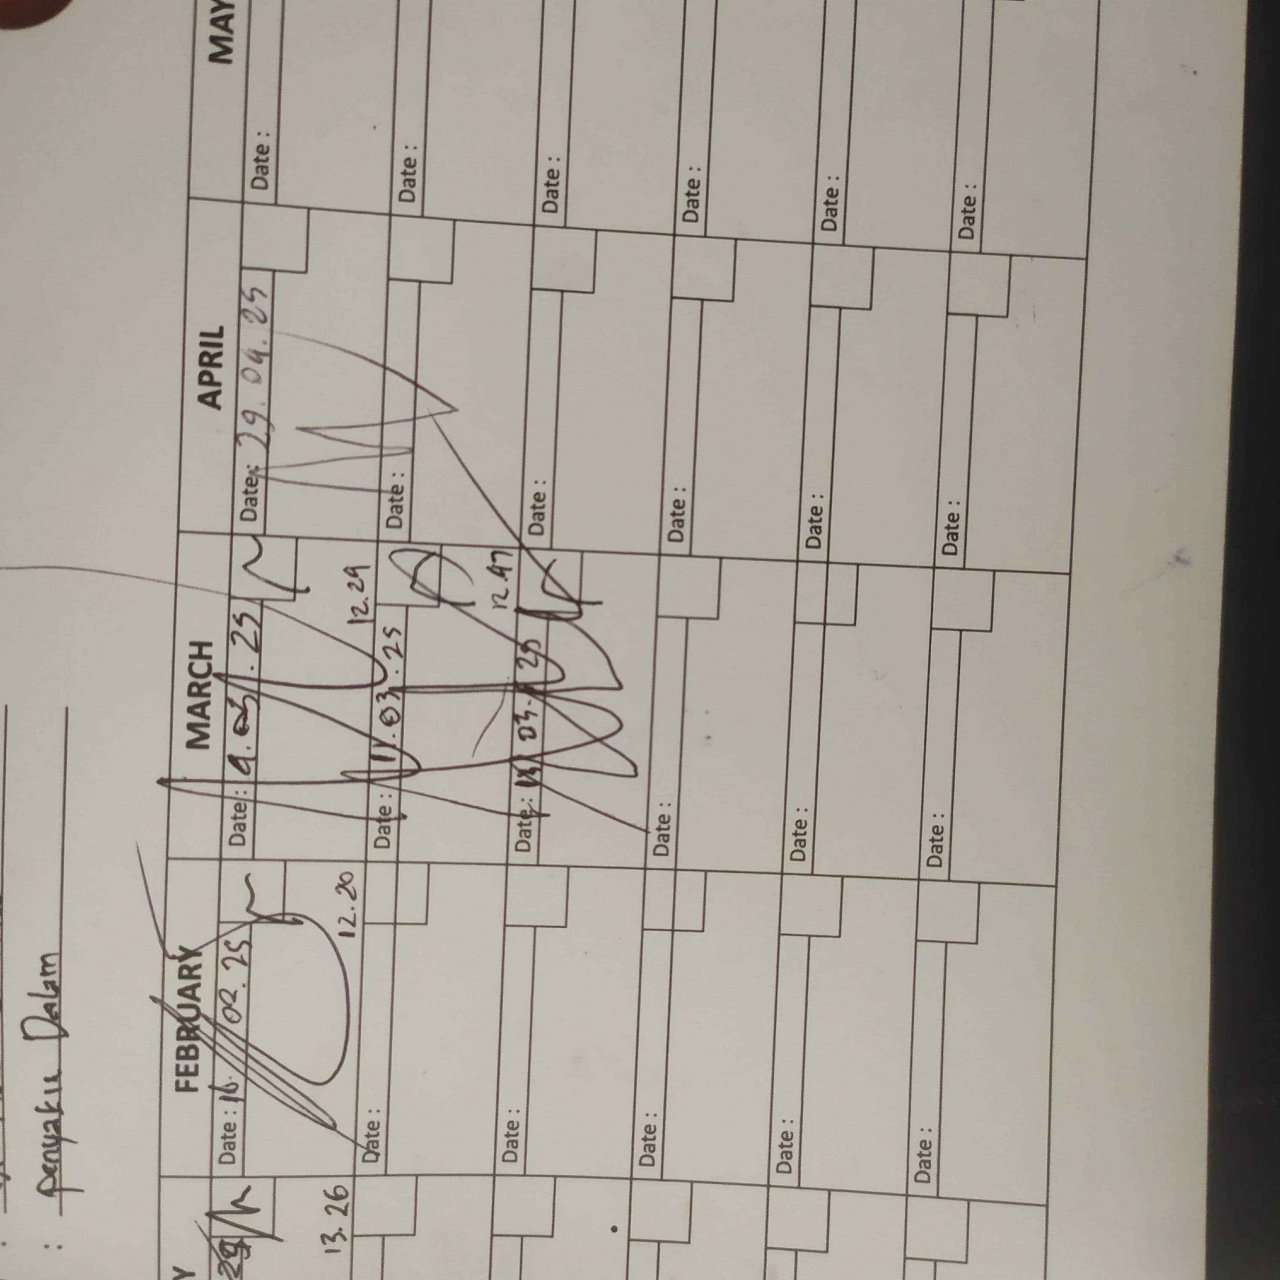 : Penyakit Dalam
FEBRUARY
MARCH
APRIL
MAY
Date : 16. 02. 25
Date : 9. 03. 25
Date : 29. 04. 25
Date :
13. 26
12. 20
12. 29
Date :
Date : 11. 03. 25
Date :
Date :
12. 47
Date :
Date : 03. 25
Date :
Date :
Date :
Date :
Date :
Date :
Date :
Date :
Date :
Date :
Date :
Date :
Date :
Date :